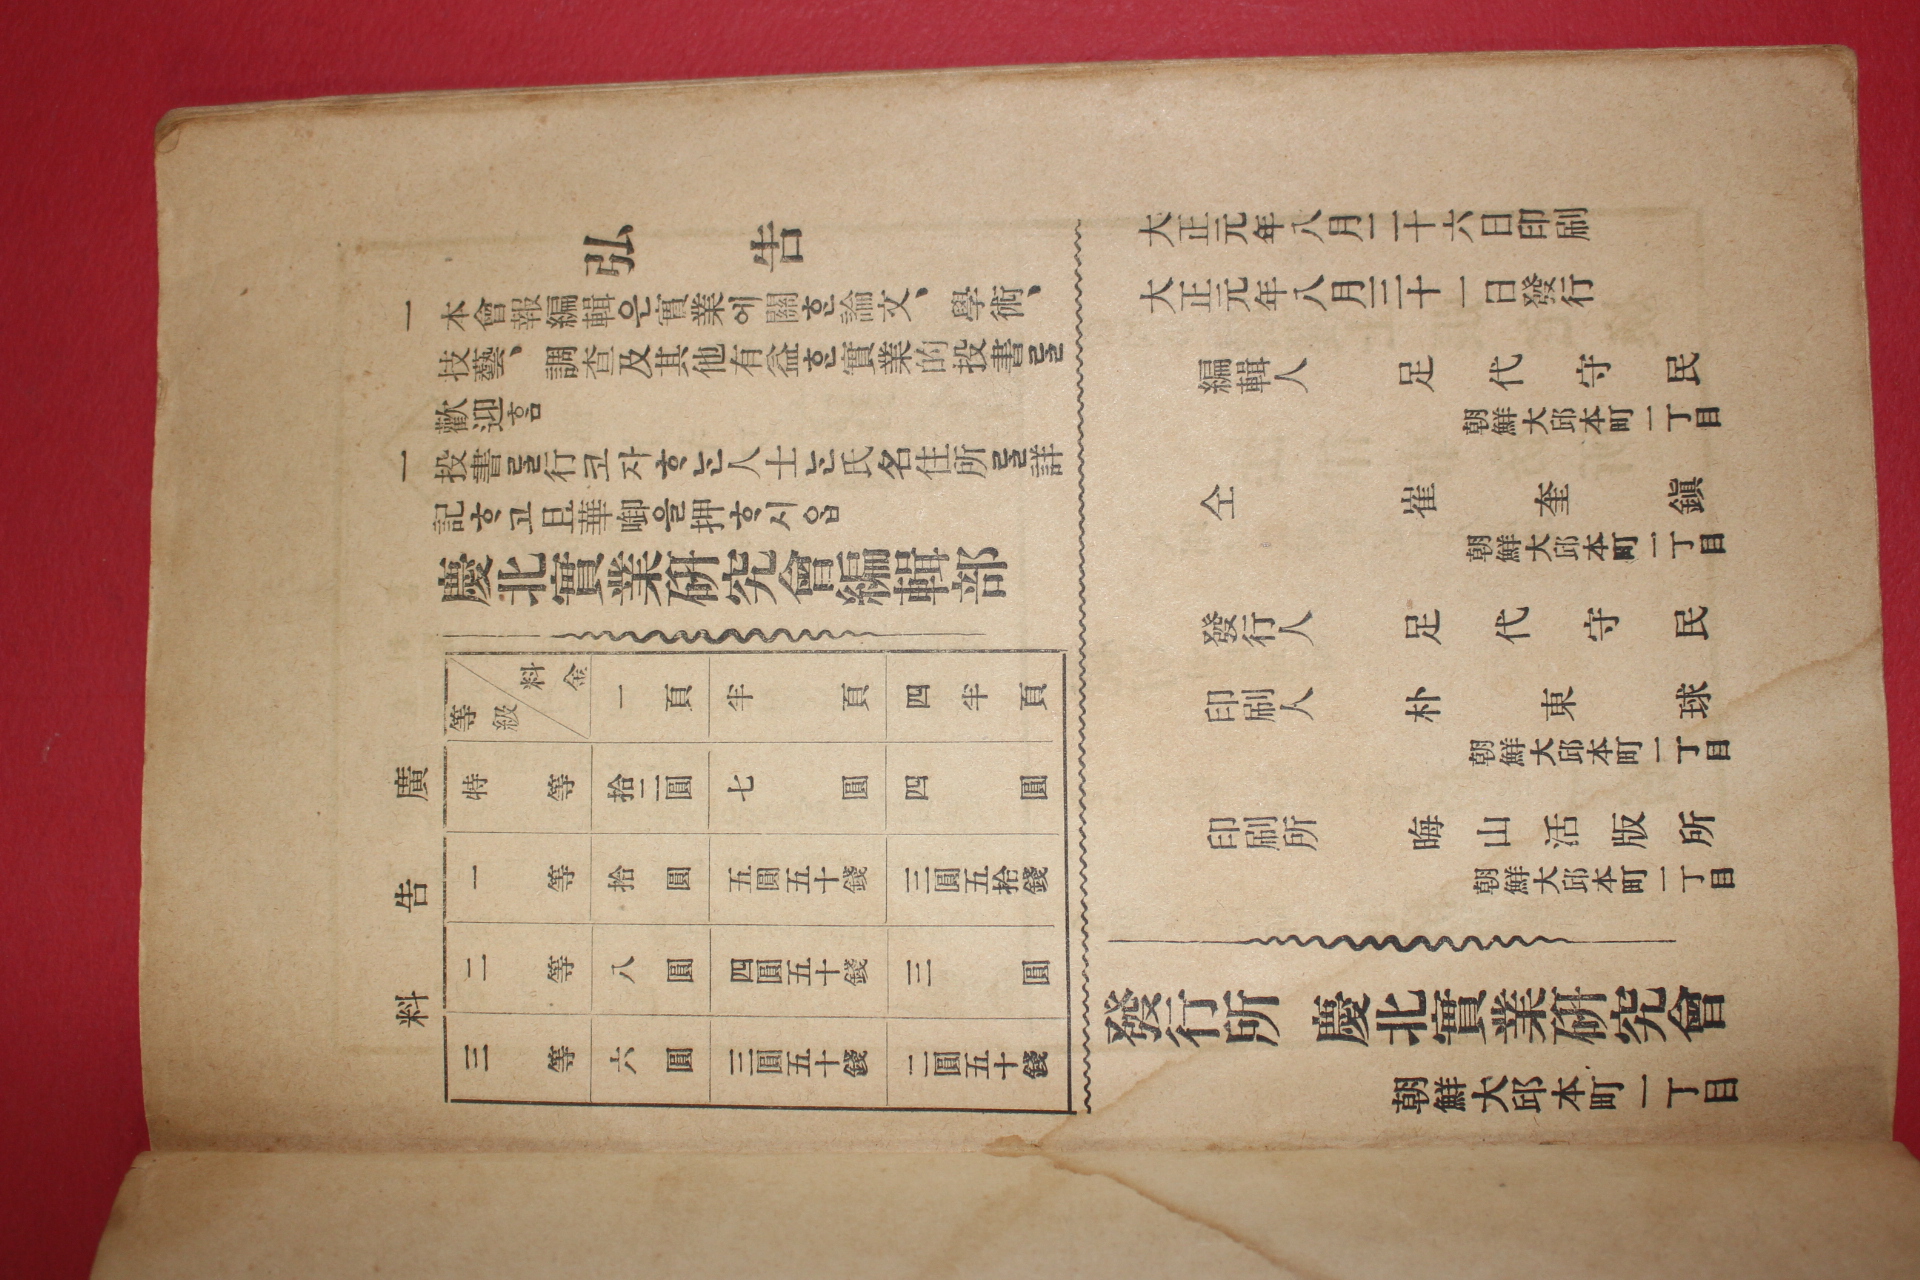 弘告
一 本會報編輯은實業에關ᄒᆞᆫ論文、學術、
技藝、調査及其他有益ᄒᆞᆫ實業的投書를
歡迎흠
一 投書를行코자ᄒᆞᄂᆞᆫ人士ᄂᆞᆫ氏名住所를詳
記ᄒᆞ고且華啣을押ᄒᆞ시옵
慶北實業硏究會編輯部
廣告料
等級 料金 一頁 半頁 四半頁
特等 拾二圓 七圓 四圓
一等 拾圓 五圓五十錢 三圓五拾錢
二等 八圓 四圓五十錢 三圓
三等 六圓 三圓五十錢 二圓五十錢
大正元年八月二十六日印刷
大正元年八月三十一日發行
編輯人 足代守民
朝鮮大邱本町一丁目
仝 崔奎鎭
朝鮮大邱本町一丁目
發行人 足代守民
印刷人 朴東球
朝鮮大邱本町一丁目
印刷所 晦山活版所
朝鮮大邱本町一丁目
發行所 慶北實業硏究會
朝鮮大邱本町一丁目